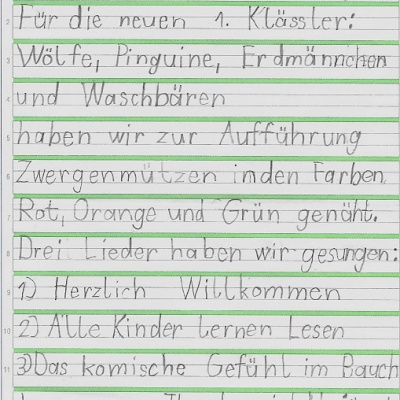 Für die neuen 1. Klässler:
Wölfe, Pinguine, Erdmännchen
und Waschbären
haben wir zur Aufführung
Zwergenmützen in den Farben
Rot, Orange und Grün genäht.
Drei Lieder haben wir gesungen:
1) Herzlich Willkommen
2) Alle Kinder lernen Lesen
3) Das komische Gefühl im Bauch